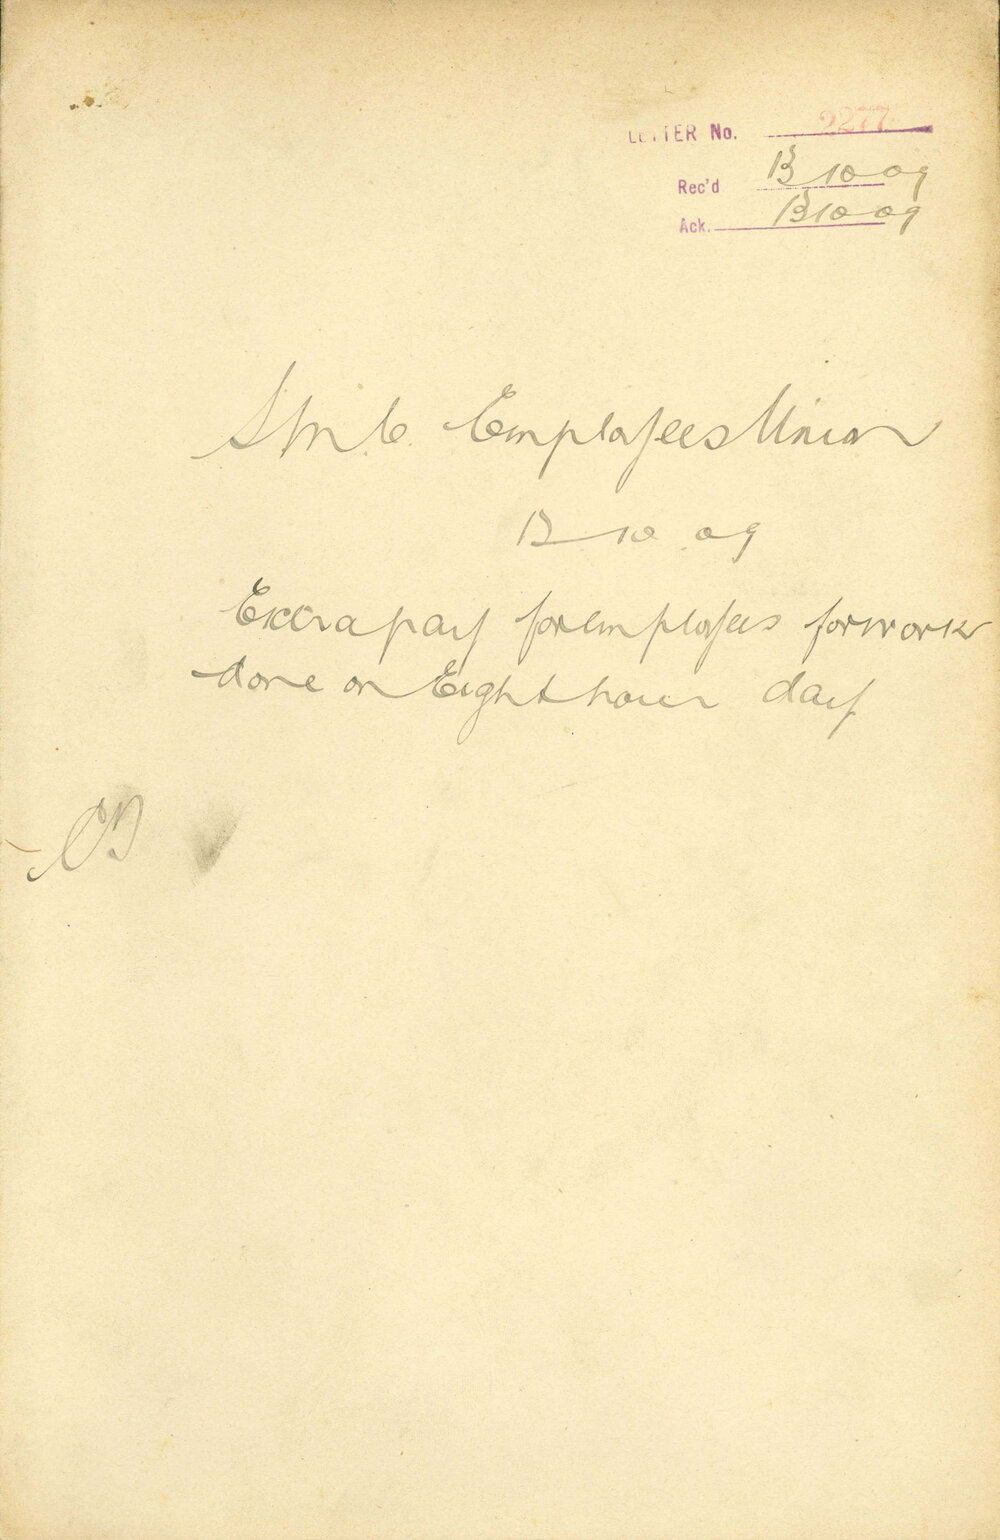 LETTER No. 2277
Rec'd 13 10 09
Ack. 13 10 09
S M C Employees Union
12 10 09
Extra pay for employees for work
done on Eight hour day